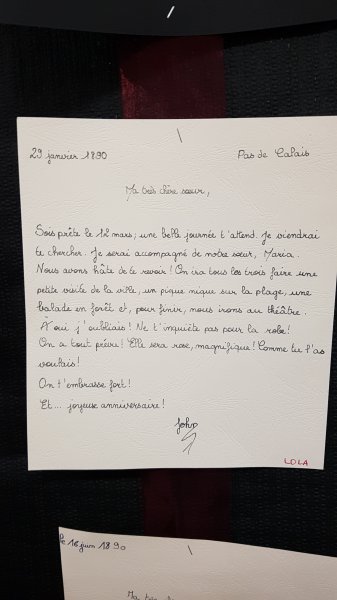 29 janvier 1890
Pas de Calais
Ma très chère sœur,
Sois prête le 12 mars; une belle journée t'attend. Je viendrai
te chercher. Je serai accompagné de notre sœur, Maria.
Nous avons hâte de te revoir! On ira tous les trois faire une
petite visite de la ville, un pique nique sur la plage, une
balade en forêt et, pour finir, nous irons au théâtre.
A oui j'oubliais! Ne t'inquiète pas pour la robe!
On a tout prévu! Elle sera rose, magnifique! Comme tu l'as
voulais!
On t'embrasse fort!
Et... joyeuse anniversaire!
John
LOLA
le 16 juin 1890
Ma très